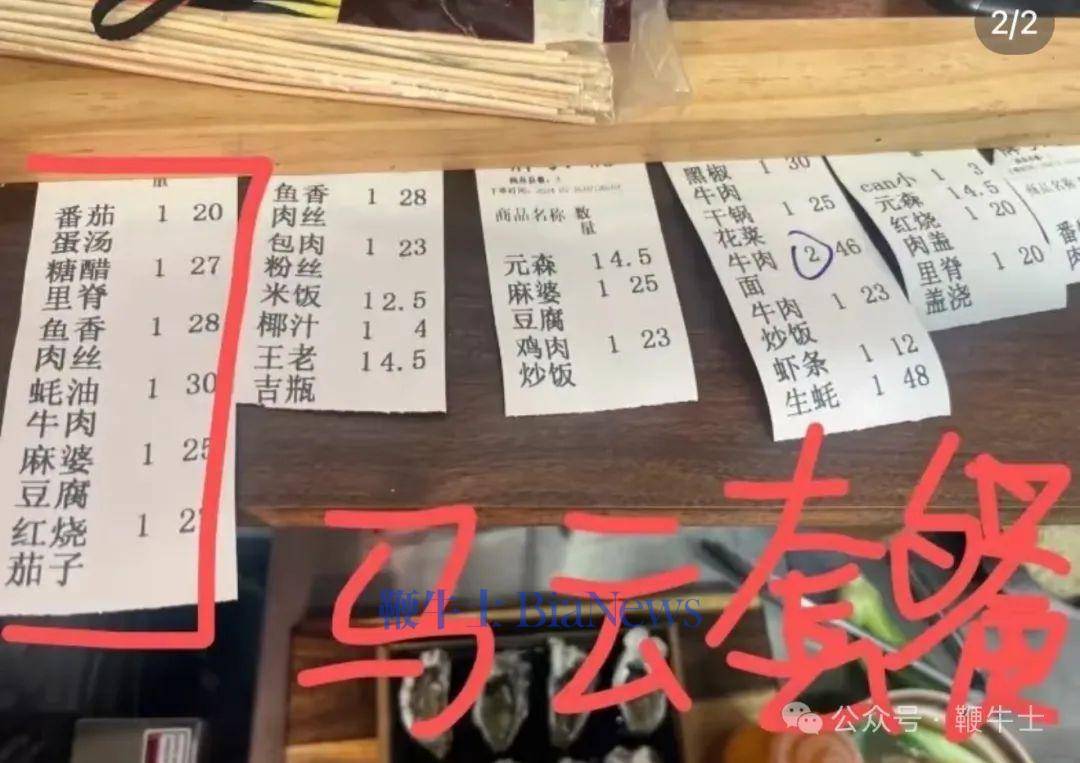 2/2
番茄 1 20
蛋汤
糖醋 1 27
里脊
鱼香 1 28
肉丝
蚝油 1 30
牛肉
麻婆 1 25
豆腐
红烧 1
茄子
鱼香 1 28
肉丝
包肉 1 23
粉丝
米饭 12.5
椰汁 1 4
王老 14.5
吉瓶
商品名称 数
量
元森 14.5
麻婆 1 25
豆腐
鸡肉 1 23
炒饭
黑椒 1 30
牛肉
干锅 1 25
花菜
牛肉 2 46
面
牛肉 1 23
炒饭
虾条 1 12
生蚝 1 48
can小 1 3
元森 14.5
红烧 1 20
肉盖
里脊 1 20
盖浇
马云套餐
鞭牛士 BiaNews
公众号·鞭牛士